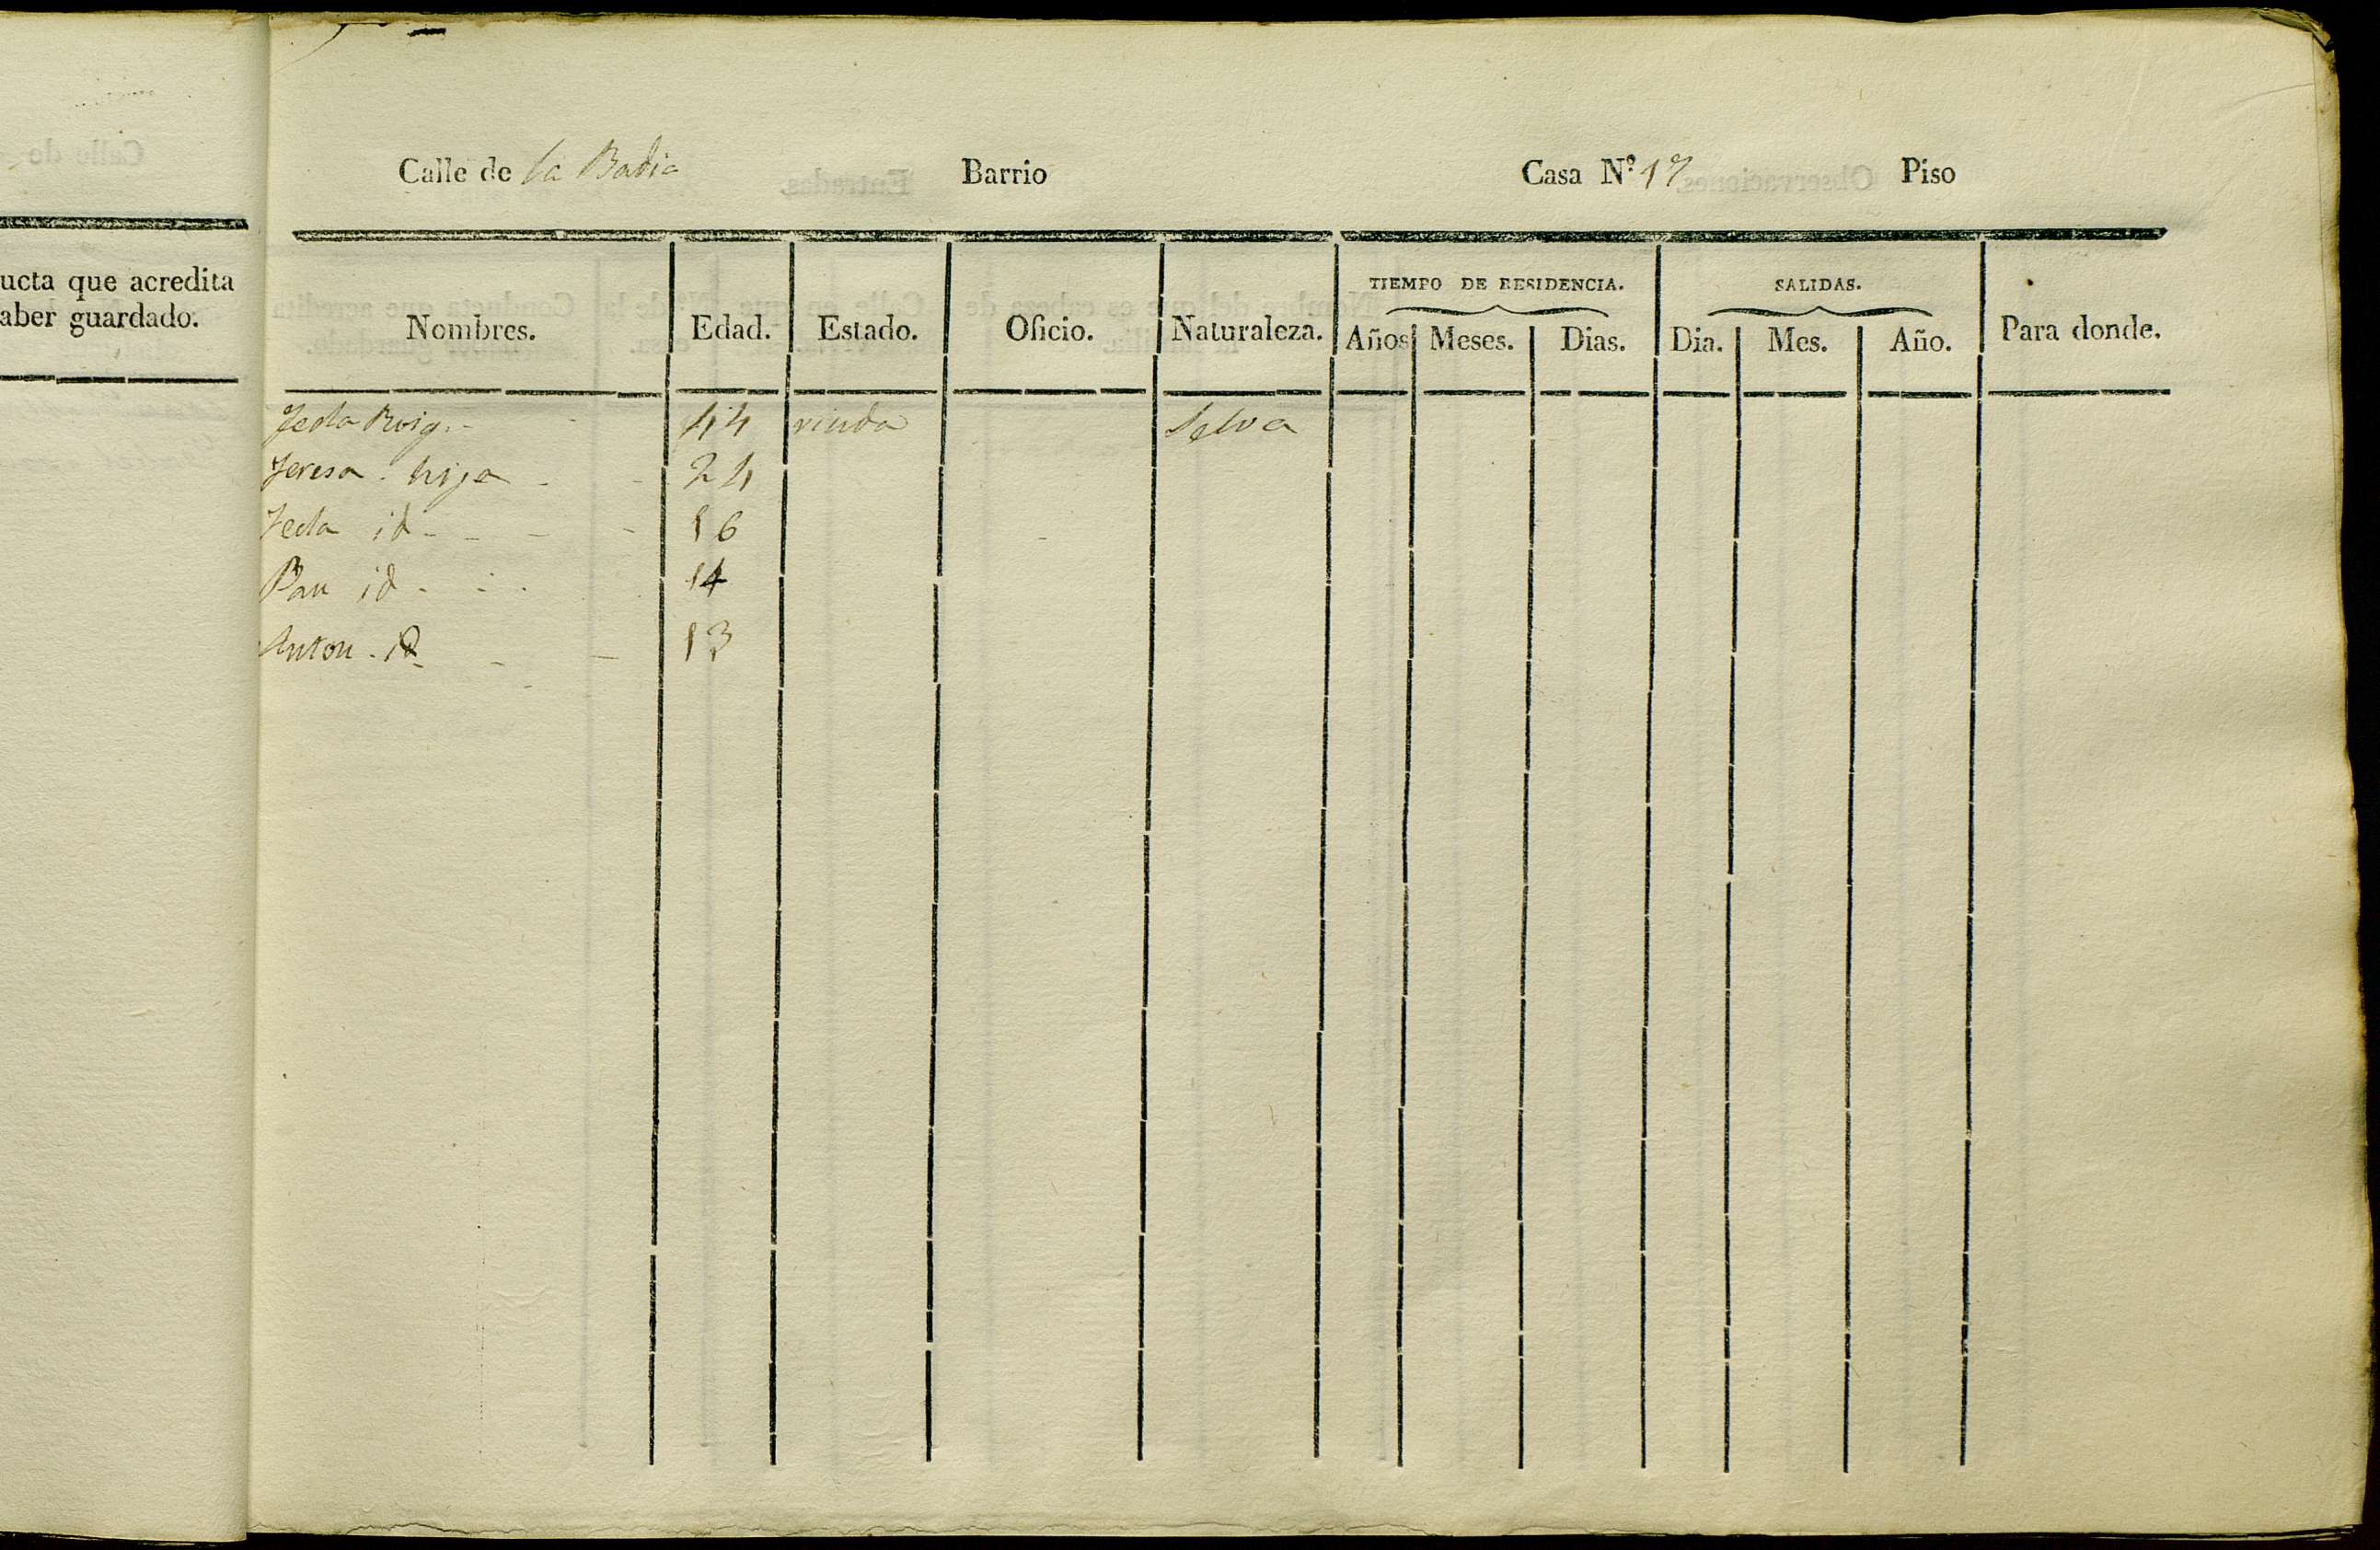 ucta que acredita
aber guardado.
Calle de la Badia Barrio Casa N.º 17 Piso
TIEMPO DE RESIDENCIA. SALIDAS.
Nombres. Edad. Estado. Oficio. Naturaleza. Años Meses. Dias. Dia. Mes. Año. Para donde.
Tecla Roig 44 viuda Selva
Teresa hija 24
Tecla id 16
Pau id 14
Anton id 13